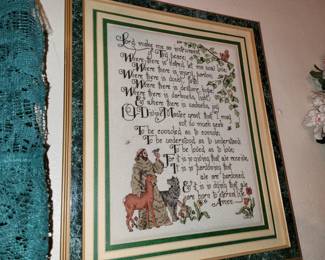 Lord, make me an instrument
of Thy peace;
Where there is hatred, let me sow love;
Where there is injury, pardon;
Where there is doubt, faith;
Where there is despair, hope;
Where there is darkness, light;
& where there is sadness, joy.
O Divine Master, grant that I may
not so much seek
To be consoled as to console;
To be understood as to understand;
To be loved as to love;
For it is in giving that we receive,
It is in pardoning that
we are pardoned,
& it is in dying that we
are born to eternal life.
Amen.